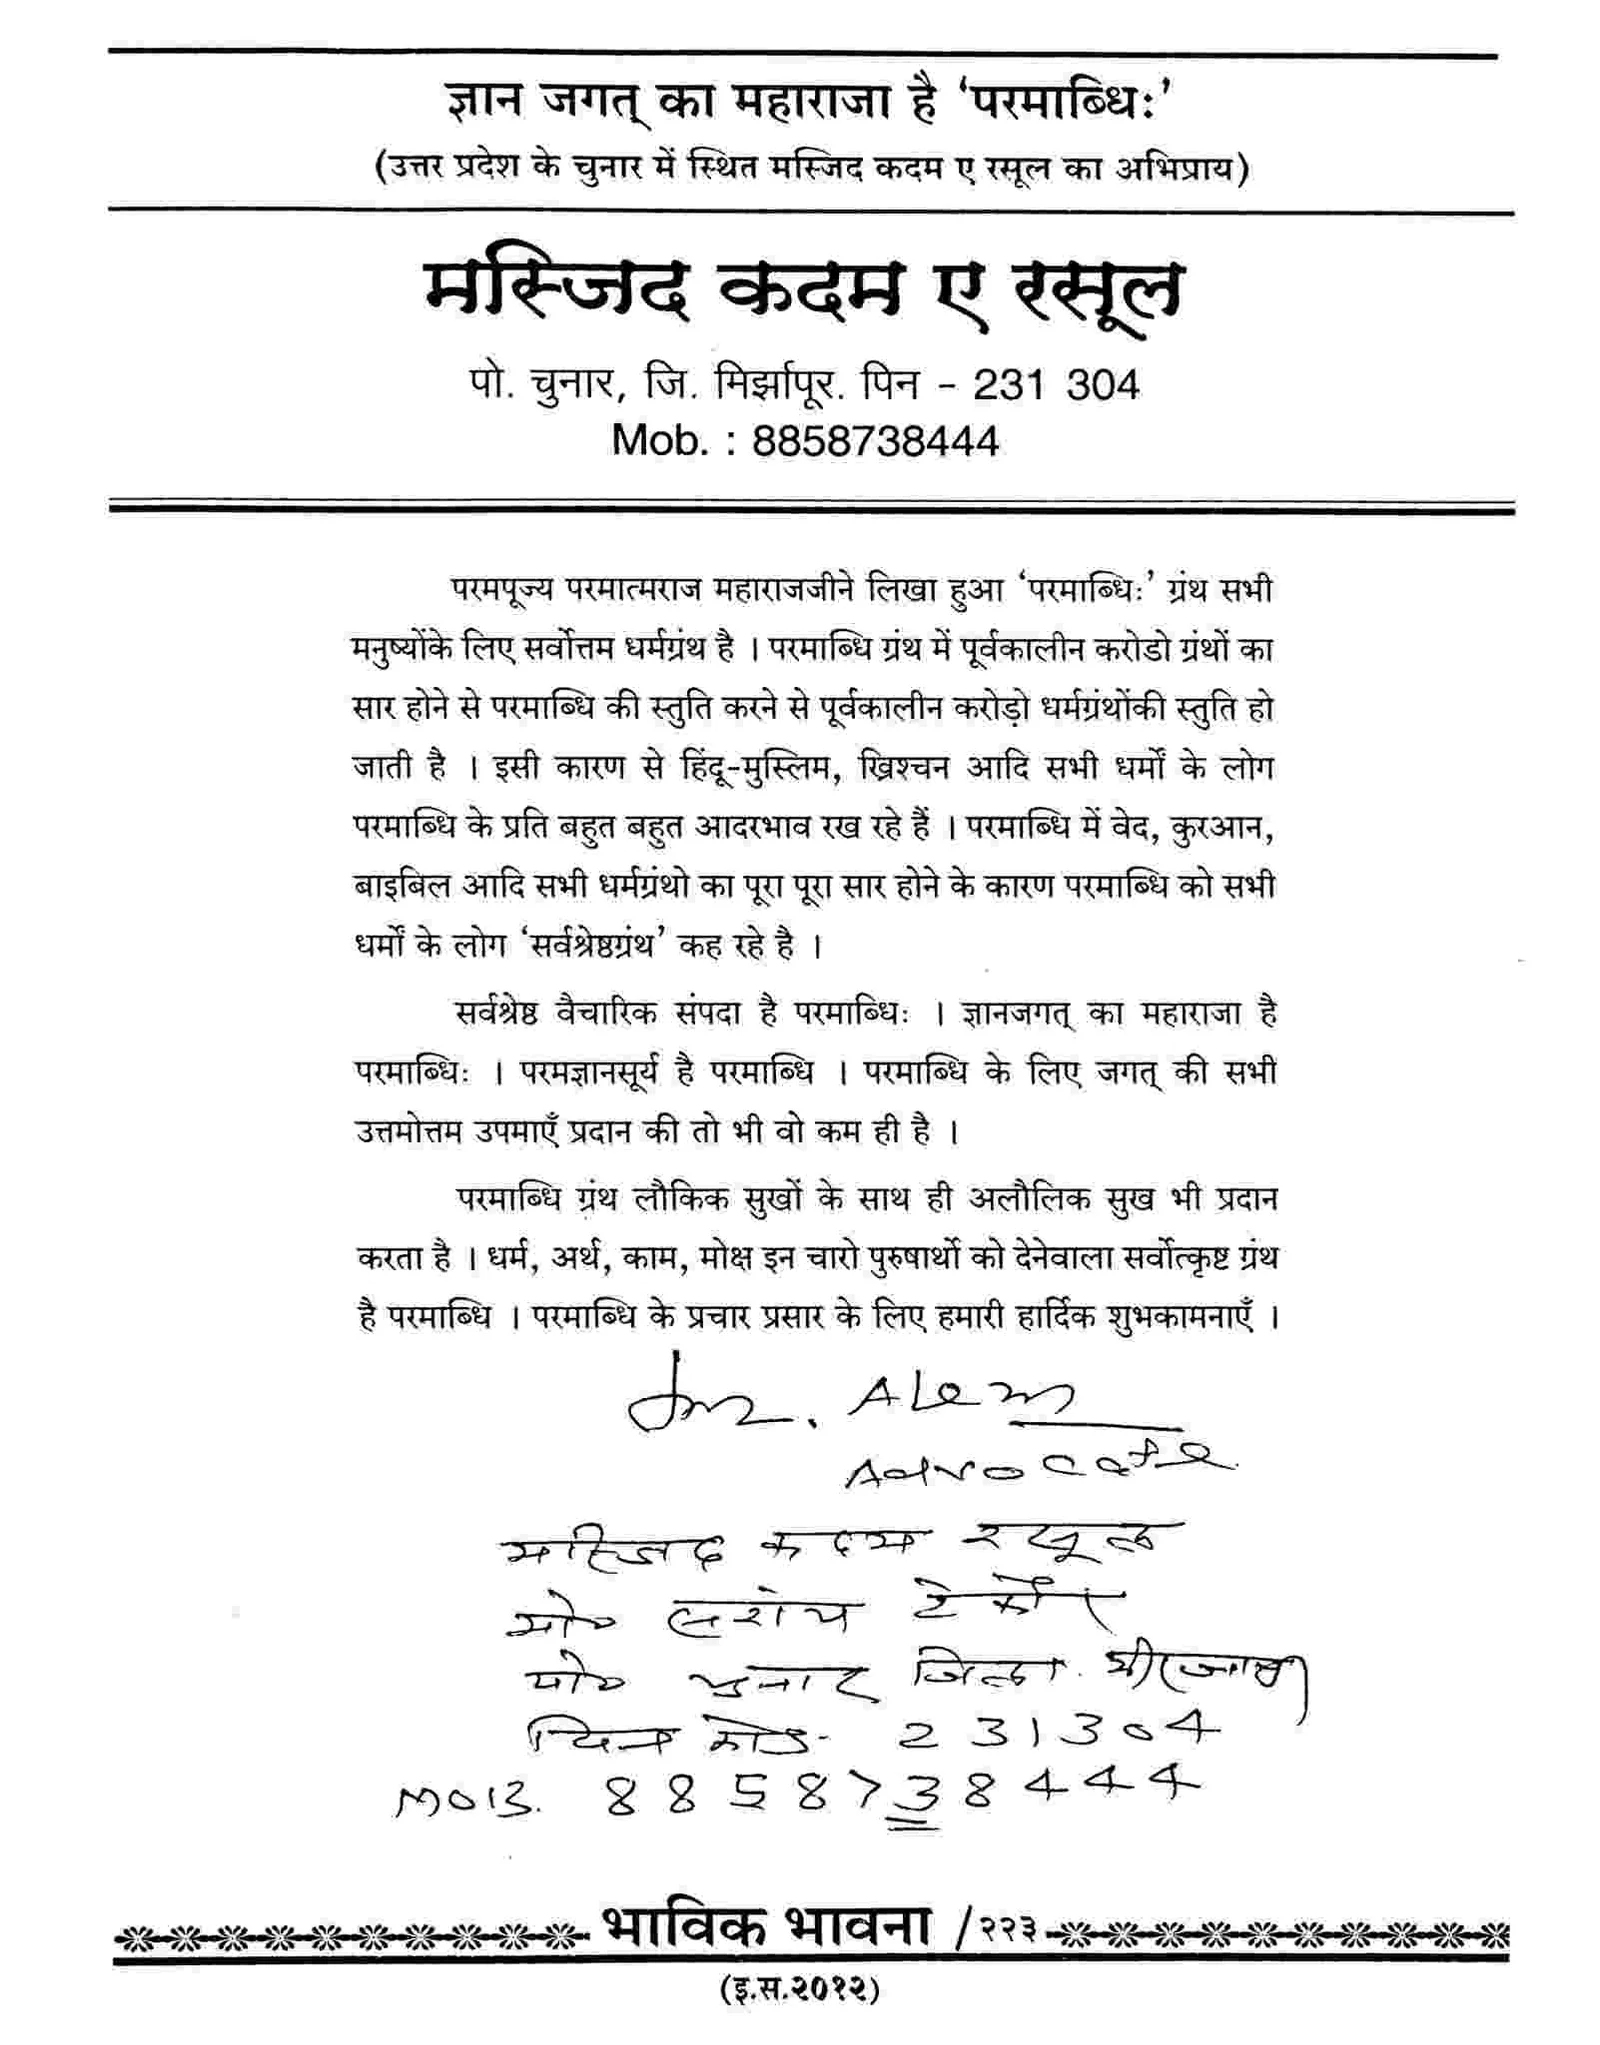 ज्ञान जगत् का महाराजा है ‘परमाब्धिः’
(उत्तर प्रदेश के चुनार में स्थित मस्जिद कदम ए रसूल का अभिप्राय)
मस्जिद कदम ए रसूल
पो. चुनार, जि. मिर्झापूर. पिन - 231 304
Mob. : 8858738444
परमपूज्य परमात्मराज महाराजजीने लिखा हुआ ‘परमाब्धिः’ ग्रंथ सभी
मनुष्योंके लिए सर्वोत्तम धर्मग्रंथ है । परमाब्धि ग्रंथ में पूर्वकालीन करोडो ग्रंथों का
सार होने से परमाब्धि की स्तुति करने से पूर्वकालीन करोड़ो धर्मग्रंथोंकी स्तुति हो
जाती है । इसी कारण से हिंदू-मुस्लिम, ख्रिश्चन आदि सभी धर्मों के लोग
परमाब्धि के प्रति बहुत बहुत आदरभाव रख रहे हैं । परमाब्धि में वेद, कुरआन,
बाइबिल आदि सभी धर्मग्रंथो का पूरा पूरा सार होने के कारण परमाब्धि को सभी
धर्मों के लोग ‘सर्वश्रेष्ठग्रंथ’ कह रहे है ।
सर्वश्रेष्ठ वैचारिक संपदा है परमाब्धिः । ज्ञानजगत् का महाराजा है
परमाब्धिः । परमज्ञानसूर्य है परमाब्धि । परमाब्धि के लिए जगत् की सभी
उत्तमोत्तम उपमाएँ प्रदान की तो भी वो कम ही है ।
परमाब्धि ग्रंथ लौकिक सुखों के साथ ही अलौलिक सुख भी प्रदान
करता है । धर्म, अर्थ, काम, मोक्ष इन चारो पुरुषार्थो को देनेवाला सर्वोत्कृष्ट ग्रंथ
है परमाब्धि । परमाब्धि के प्रचार प्रसार के लिए हमारी हार्दिक शुभकामनाएँ ।
Alem
Advocate
मस्जिद कदम रसूल
मो०
पो० चुनार जिला
पिन कोड- 231304
MOB. 8858738444
भाविक भावना /२२३
(इ.स.२०१२)